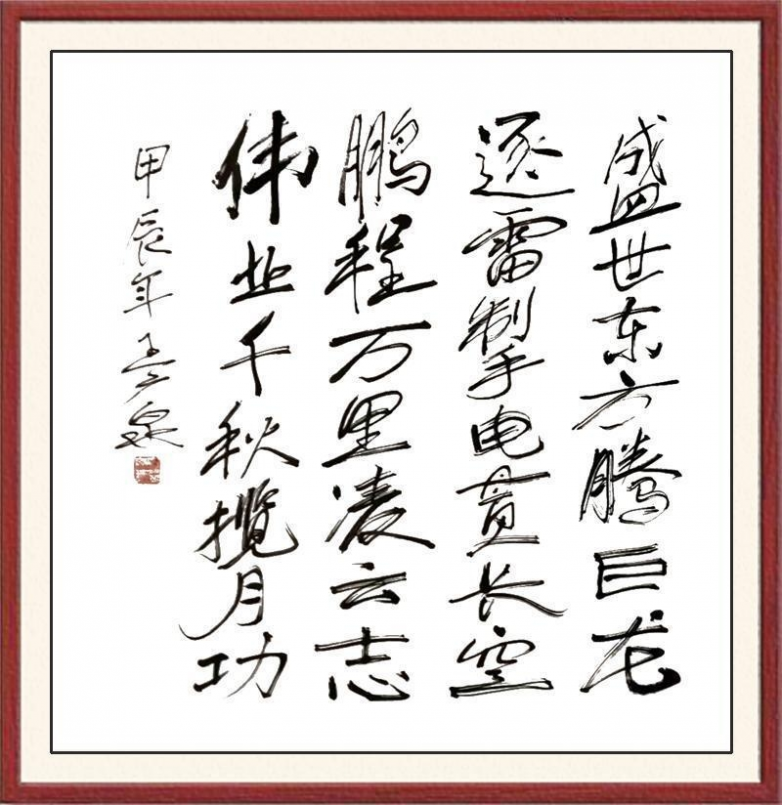 盛世东方腾巨龙
逐雷掣电贯长空
鹏程万里凌云志
伟业千秋揽月功
甲辰年